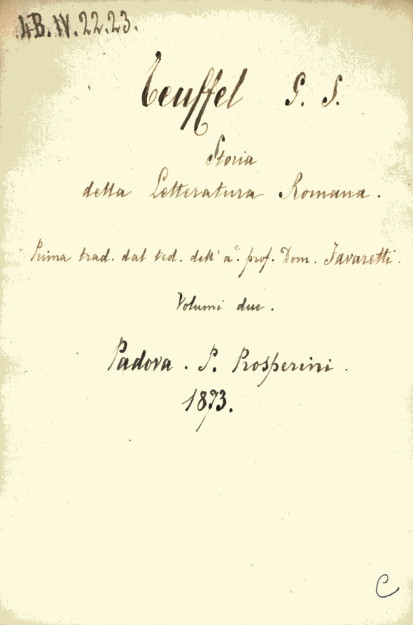 4B.IV.22.23.
Teuffel G. S.
Storia
della Letteratura Romana.
Prima trad. dal ted. dell' a. prof. Dom. Favaretti.
Volumi due.
Padova. P. Prosperini.
1873.
C